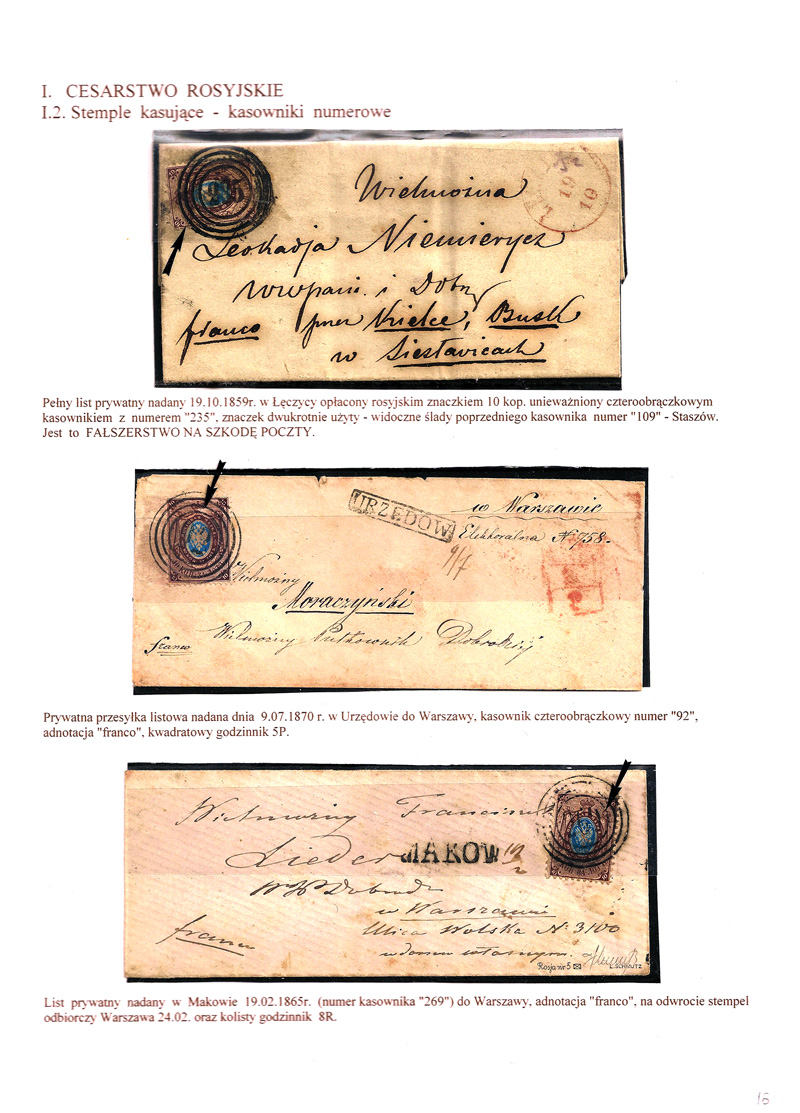 I. CESARSTWO ROSYJSKIE
I.2. Stemple kasujące - kasowniki numerowe
235
19
10
Wielmożna
Leokadja Niemierycz
i Dobr
franco przez Kielce, Busk
w Siesławicach
Pełny list prywatny nadany 19.10.1859r. w Łęczycy opłacony rosyjskim znaczkiem 10 kop. unieważniony czteroobrączkowym
kasownikiem z numerem "235", znaczek dwukrotnie użyty - widoczne ślady poprzedniego kasownika numer "109" - Staszów.
Jest to FAŁSZERSTWO NA SZKODĘ POCZTY.
URZĘDOW
w Warszawie
Elektoralna N 758.
9/7
Wielmożny
Moraczyński
Wielmożny Pułkownik Dobrodziej
franco
Prywatna przesyłka listowa nadana dnia 9.07.1870 r. w Urzędowie do Warszawy, kasownik czteroobrączkowy numer "92",
adnotacja "franco", kwadratowy godzinnik 5P.
Wielmożny Franciszek
Lieder MAKOW 19/2
WP Dobrodz
w Warszawie
Ulica Wolska N: 3100
w domu własnym.
franco
Rosja nr 5
L. SCHMUTZ
List prywatny nadany w Makowie 19.02.1865r. (numer kasownika "269") do Warszawy, adnotacja "franco", na odwrocie stempel
odbiorczy Warszawa 24.02. oraz kolisty godzinnik 8R.
16